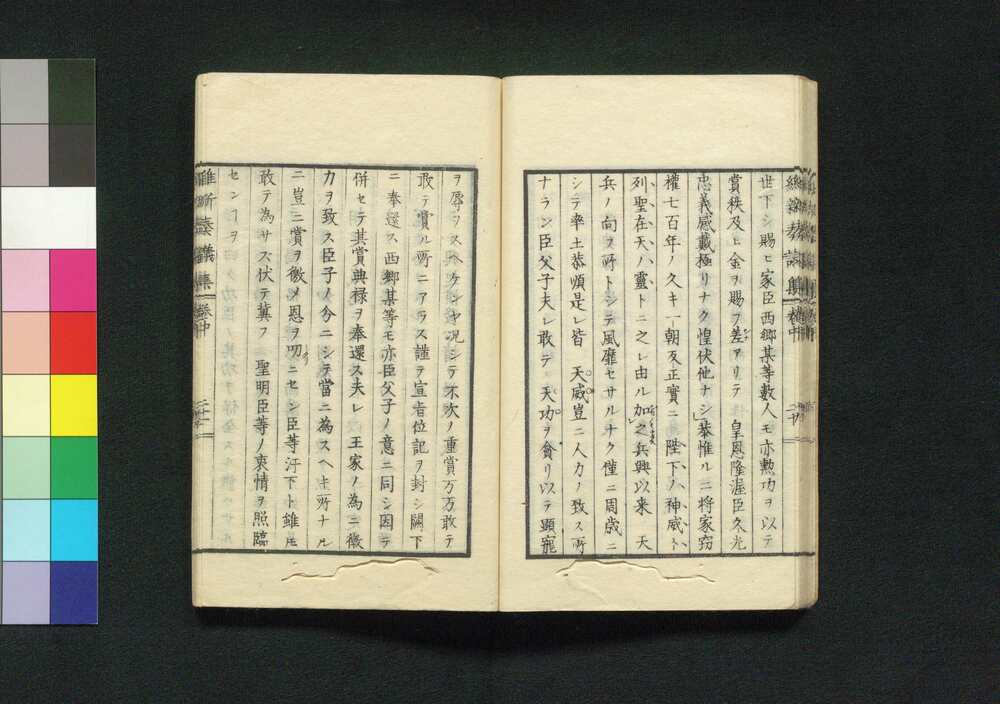 世下シ賜ヒ家臣西郷某等數人モ亦勲功ヲ以テ
賞秩及ヒ金ヲ賜フ差アリテ 皇恩隆渥臣久光
忠義感戴極リナク惶伏他ナシ恭惟ルニ将家窃
權七百年ノ久キ一朝反正實ニ 陛下ハ神威ト
列聖在天ハ靈トニ之レ由ル加之兵興以来 天
兵ノ向フ所トシテ風靡セサルナク僅ニ周歳ニ
シテ率土恭順是レ皆 天威豈ニ人力ノ致ス所
ナラン臣父子夫レ敢テ 天功ヲ貪リ以テ顕寵
ヲ辱ヲスヘケンヤ况シテ不次ノ重賞万万敢テ
敢テ賞ル所ニアラス謹テ宣旨位記ヲ封シ闕下
ニ奉還ス西郷某等モ亦臣父子ノ意ニ同シ因テ
併セテ其賞典禄ヲ奉還ス夫レ 王家ノ為ニ微
力ヲ致ス臣子ノ分ニシテ當ニ為スヘキ所ナル
ニ豈ニ賞ヲ徼メ恩ヲ叨ニセン臣等汗下ト雖𪜈
敢テ為サス伏テ冀フ 聖明臣等ノ衷情ヲ照臨
センヿヲ
維新奏議集 巻中